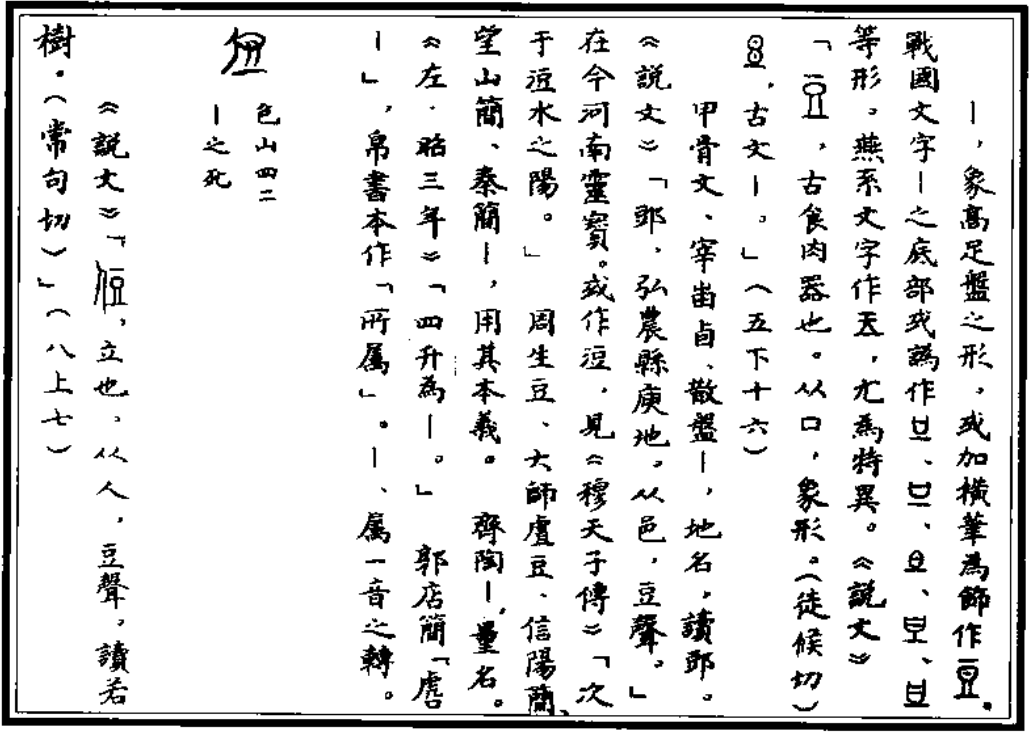 ｜，象高足盤之形，或加橫筆為飾作。
戰國文字｜之底部或譌作、、、、
等形。燕系文字作，尤為特異。《說文》
「，古食肉器也。从口，象形。（徒候切）
，古文｜。」（五下十六）
甲骨文、宰甾卣、散盤｜，地名，讀郖。
《說文》「郖，弘農縣庾地。从邑，豆聲。」
在今河南靈寶。或作浢，見《穆天子傳》「次
于浢水之陽。」周生豆、大師虘豆、信陽簡、
望山簡、秦簡｜，用其本義。齊陶｜，量名。
《左．昭三年》「四升為｜。」郭店簡「虘
｜」，帛書本作「所屬」。｜、屬一音之轉。
包山四二
｜之死
《說文》「，立也，从人，豆聲，讀若
樹．（常句切）」（八上七）